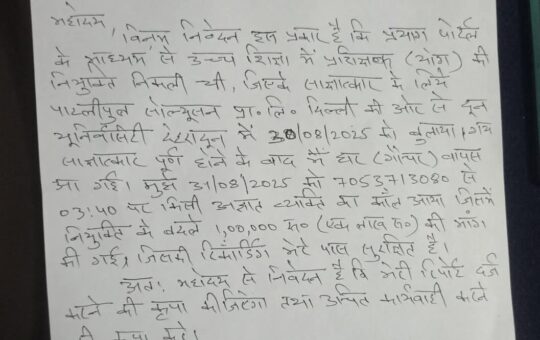 महोदय,
विनम्र निवेदन इस प्रकार है कि प्रयाग पोर्टल
के माध्यम से उच्च शिक्षा में प्रशिक्षक (योग) की
नियुक्ति निकली थी, जिसके साक्षात्कार के लिये
पाटलीपुत्र सोल्यूसन प्रा. लि. दिल्ली की ओर से दून
यूनिवर्सिटी देहरादून में 30/08/2025 को बुलाया गया
साक्षात्कार पूर्ण होने के बाद मैं घर (गोचर) वापस
आ गई। मुझे 31/08/2025 को 7053713080 से
03:40 पर किसी अज्ञात व्यक्ति का कॉल आया जिसमें
नियुक्ति के बदले 1,00,000 रु० (एक लाख रु०) की मांग
की गई, जिसकी रिकॉर्डिंग मेरे पास सुरक्षित है।
अतः महोदय से निवेदन है कि मेरी रिपोर्ट दर्ज
करने की कृपा कीजिएगा तथा उचित कार्यवाही करने
की कृपा करें।